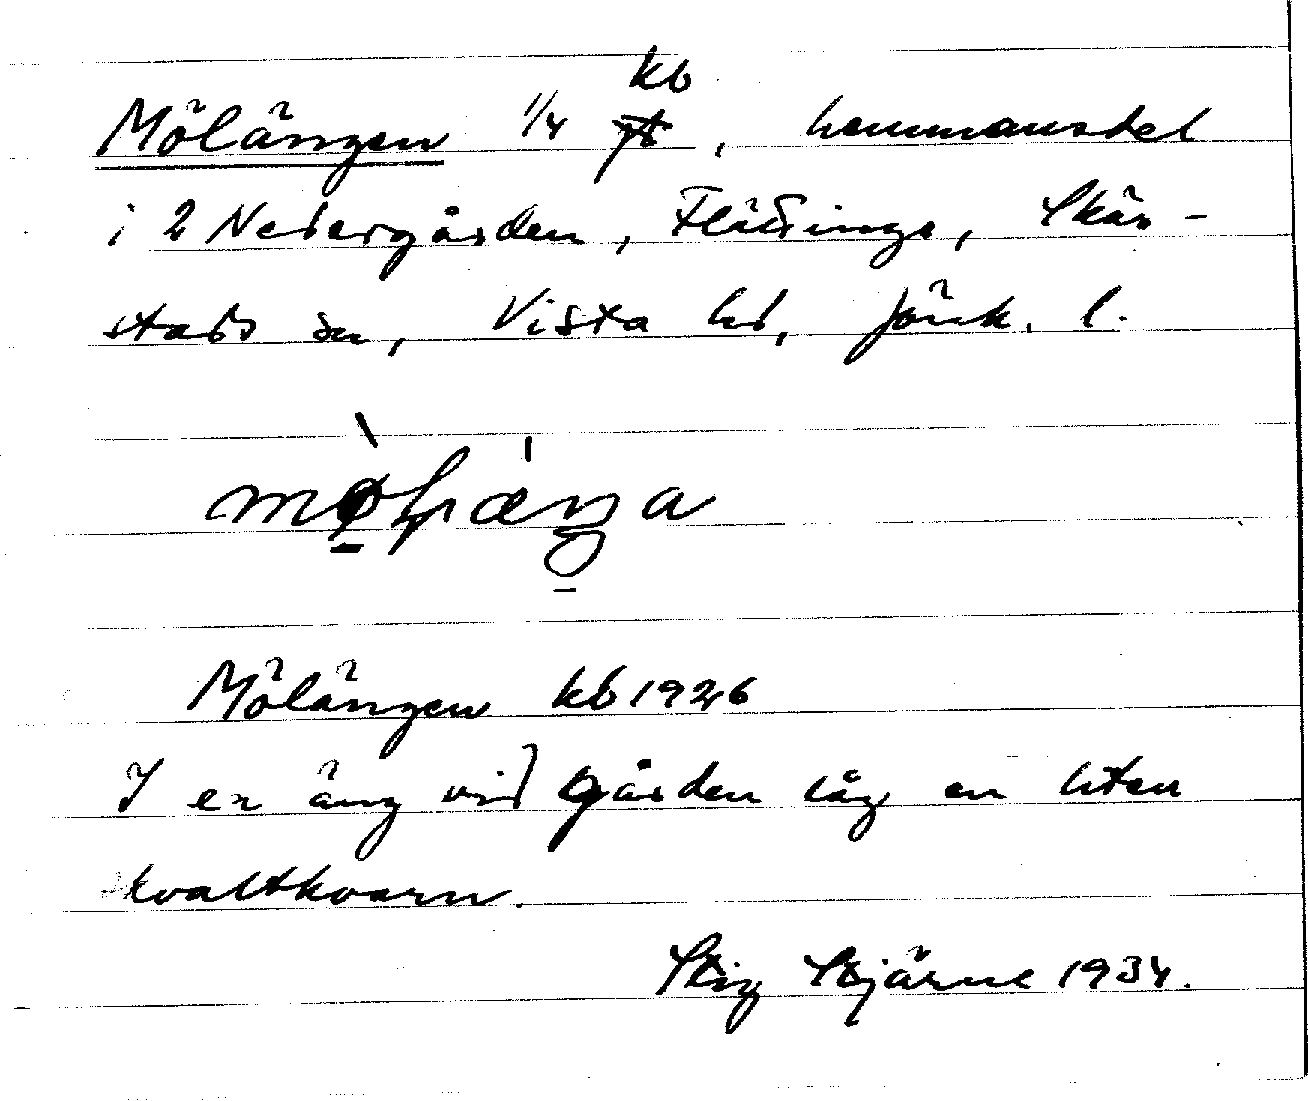 kb
Mölängen 1/4 jb, hemmansdel
i 2 Nedergården, Flättinge, Skär-
stads sn, Vista hd, Jönk. l.
Mölängen kb 1926
I en äng vid gården låg en liten
skvaltkvarn.
Stig Stjärne 1934.